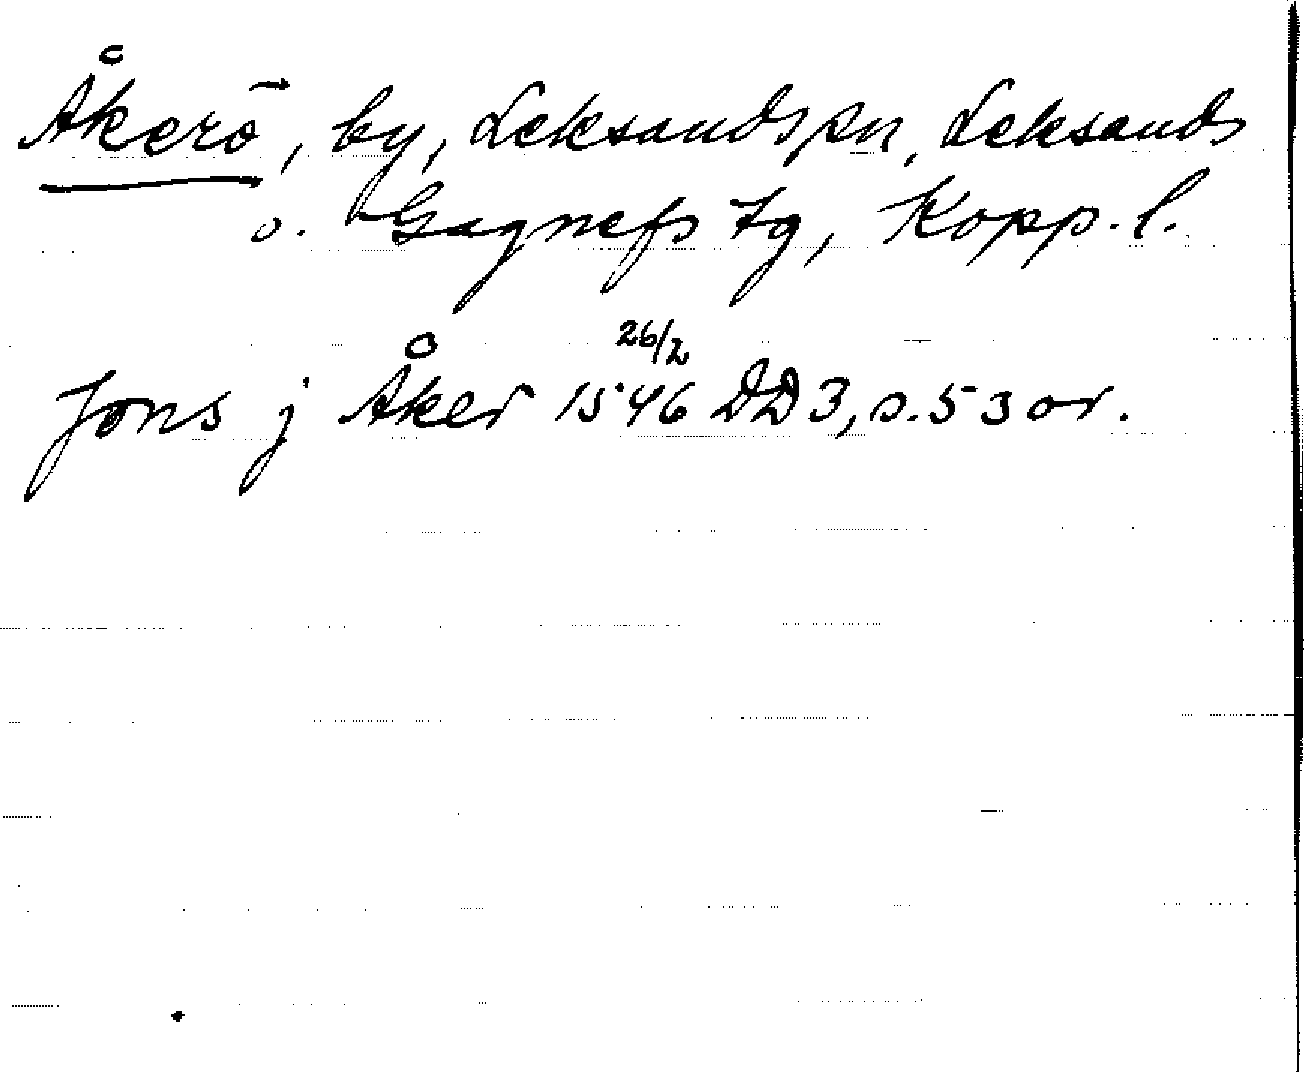 Åkerö, by, Leksands sn, Leksands
o. Gagnefs tg, Kopp. l.
Jons j Åker 26/2 1546 DD 3, s. 53 or.